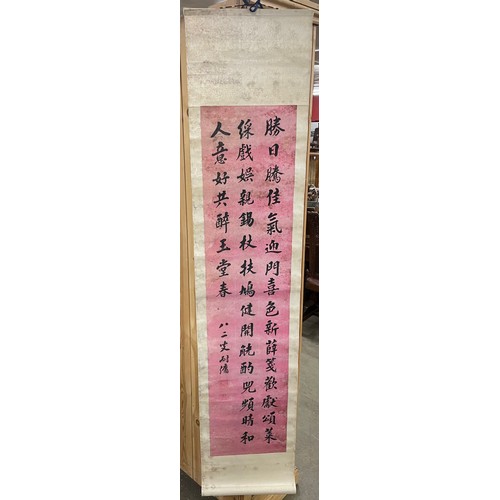 勝日騰佳氣迎門喜色新薛箋歡獻頌萊
綵戲娛親錫杖扶鳩健開觥酌兕頻時和
人意好共醉玉堂春
八二叟